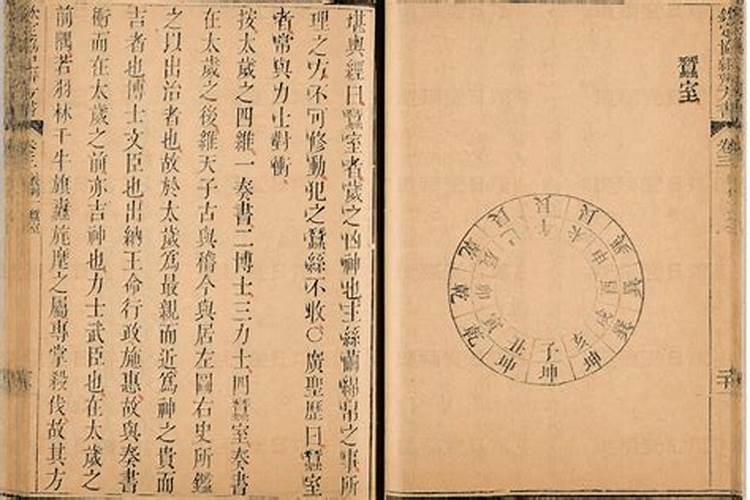 蠶室
巳 午 未 申 酉 戌 亥 子 丑 寅 卯 辰
艮 艮 巽 巽 巽 坤 坤 坤 乾 乾 乾 艮
堪輿經曰蠶室者歲之凶神也主絲繭綿帛之事所
理之方不可修動犯之蠶絲不收○廣聖歷曰蠶室
者常與力士對衝
按太歲之四維一奏書二博士三力士四蠶室奏書
在太歲之後維天子古與稽今與居左圖右史所鑑
之以出治者也故於太歲爲最親而近爲神之貴而
吉者也博士文臣也出納王命行政施惠故與奏書
衝而在太歲之前亦吉神也力士武臣也在太歲之
前隅若羽林千牛旗纛旄麾之屬專掌殺伐故其方